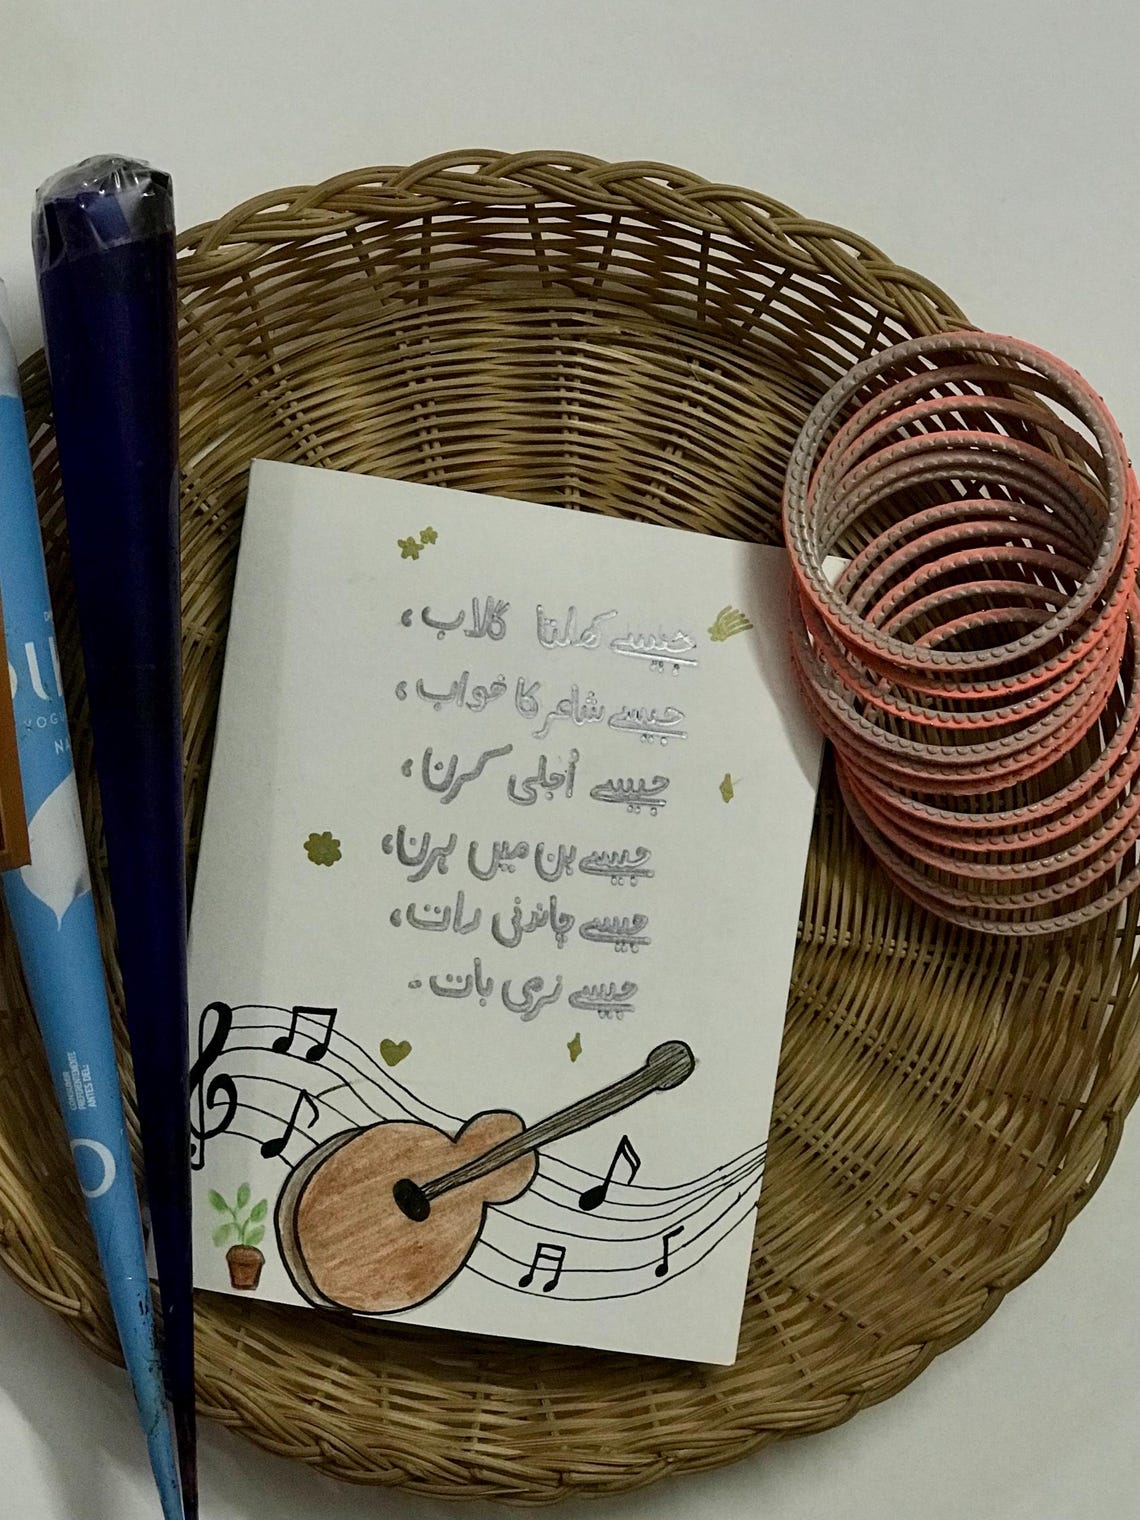 جیسے کھلتا گلاب،
جیسے شاعر کا خواب،
جیسے اُجلی کرن،
جیسے بن میں ہرن،
جیسے چاندنی رات،
جیسے نرمی بات۔
YOG
NA
CONSUMIR
PREFERENTEMENTE
ANTES DEL: